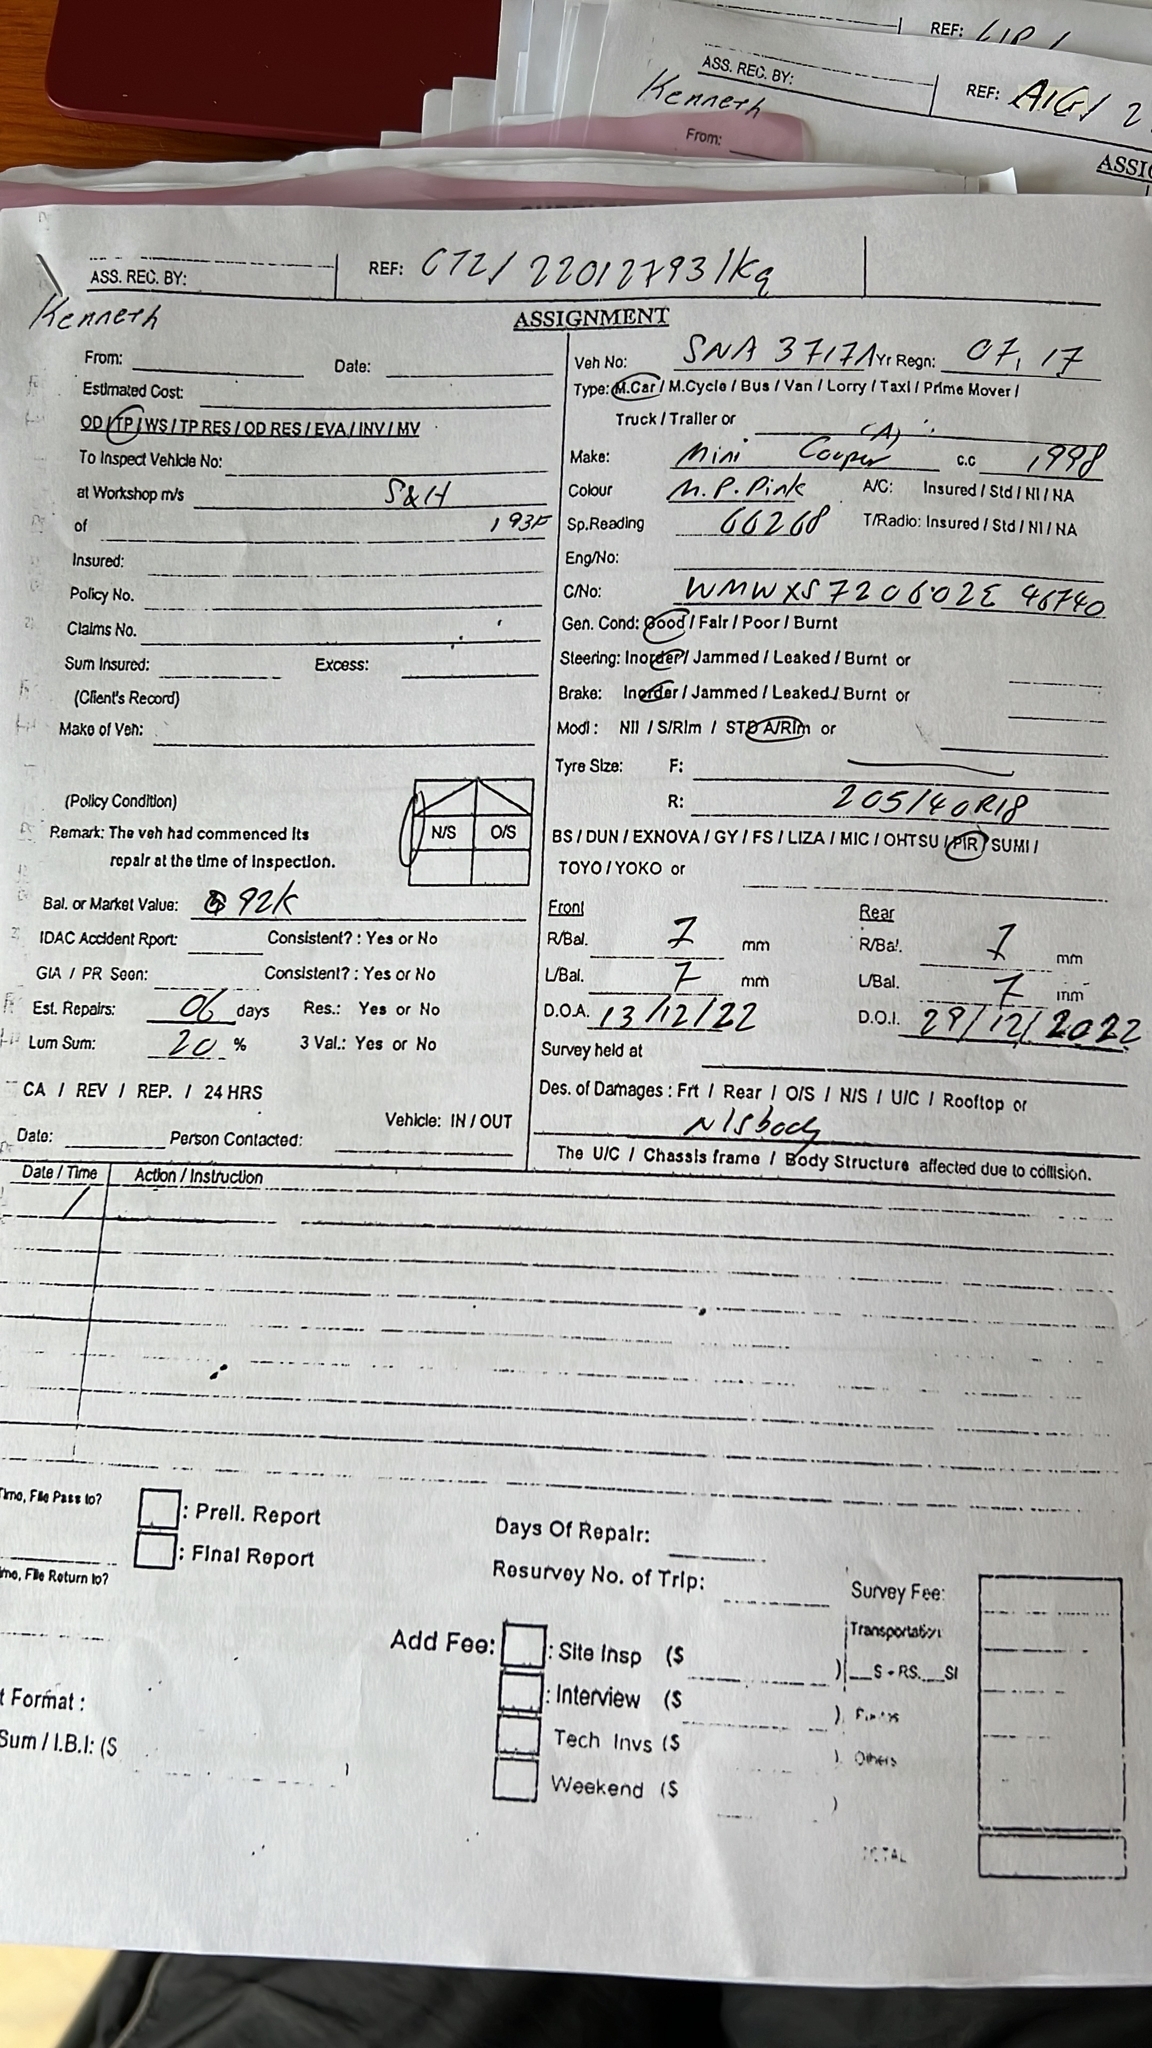 REF:
ASS. REC. BY:
REF: AIG/ 2
Kenneth
From:
ASS. REC. BY:
REF: CTZ/ 22012793/Kq
Kenneth
ASSIGNMENT
From: Date:
Estimated Cost:
OD / TP / WS / TP RES / OD RES / EVA / INV / MV
To Inspect Vehicle No:
at Workshop m/s S&H
of 193F
Insured:
Policy No.
Claims No.
Sum Insured: Excess:
(Client's Record)
Make of Veh:
(Policy Condition)
Remark: The veh had commenced its
repair at the time of inspection.
N/S O/S
Bal. or Market Value: 92K
IDAC Accident Rport: Consistent? : Yes or No
GIA / PR Seen: Consistent? : Yes or No
Est. Repairs: 06 days Res.: Yes or No
Lum Sum: 20 % 3 Val.: Yes or No
CA / REV / REP. / 24 HRS
Vehicle: IN / OUT
Date: Person Contacted:
Veh No: SNA 3717A Yr Regn: 07, 17
Type: M.Car / M.Cycle / Bus / Van / Lorry / Taxi / Prime Mover /
Truck / Trailer or (A)
Make: Mini Cooper c.c 1998
Colour M.P.Pink A/C: Insured / Std / NI / NA
Sp.Reading 66268 T/Radio: Insured / Std / NI / NA
Eng/No:
C/No: WMWXS720602E 46740
Gen. Cond: Good / Fair / Poor / Burnt
Steering: Inorder / Jammed / Leaked / Burnt or
Brake: Inorder / Jammed / Leaked / Burnt or
Modi : Nil / S/Rim / STD A/Rim or
Tyre Size: F:
R: 205/40R18
BS / DUN / EXNOVA / GY / FS / LIZA / MIC / OHTSU / PIR / SUMI /
TOYO / YOKO or
Front Rear
R/Bal. 7 mm R/Bal. 7 mm
L/Bal. 7 mm L/Bal. 7 mm
D.O.A. 13/12/22 D.O.I. 29/12/2022
Survey held at
Des. of Damages : Frt / Rear / O/S / N/S / U/C / Rooftop or
N/S body
The U/C / Chassis frame / Body Structure affected due to collision.
Date / Time Action / Instruction
File Pass to?
: Preli. Report
: Final Report
File Return to?
Days Of Repair:
Resurvey No. of Trip:
Survey Fee:
Transportation
Add Fee: : Site Insp ($ ) S - RS. SI
: Interview ($ )
Tech Invs ($ ) Others
Weekend ($ )
t Format :
Sum / I.B.I: ($ )
TOTAL